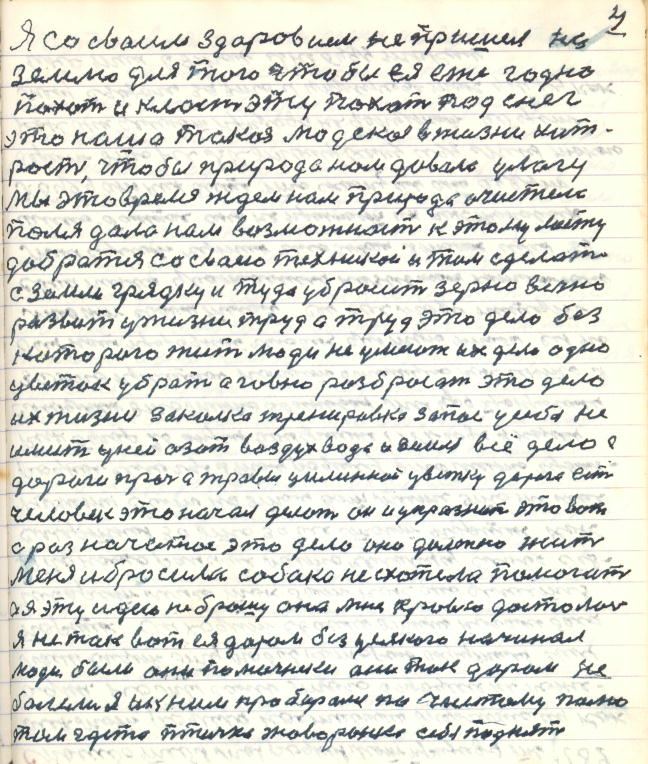 4
Я со своим здоровием не пришел на
землю для того чтобы ея еже годно
пахат и класт эту пахат под снег
это наша такая людская в жизни хит-
рост, чтобы природа нам довала улагу
Мы это время ждем нам природа очистела
поля дала нам возможност к этому месту
добратся со своею техникой и там сделать
с земли грядку и туда убросит зерно
развит у жизни труд а труд это дело без
которого жит люди не умеют их дело одно
цветок убрат а говно розбросат это дело
их жизни закалка тренировка запас учеба не
имеит у ней азот воздух вода и земля всё дело
дорога а травы цветку дорога
человек это начал делат он и упразнит это вот
а раз начатое это дело оно должно жит
Меня и бросила собака не схотела помогат
а я эту идею не брошу она мне кровью досталас
я не так вот ея даром без начинал
люди были они помочники они так даром не
болели я к ним пробирался по чистому полю
там где то птичка жаворонка себя поднят